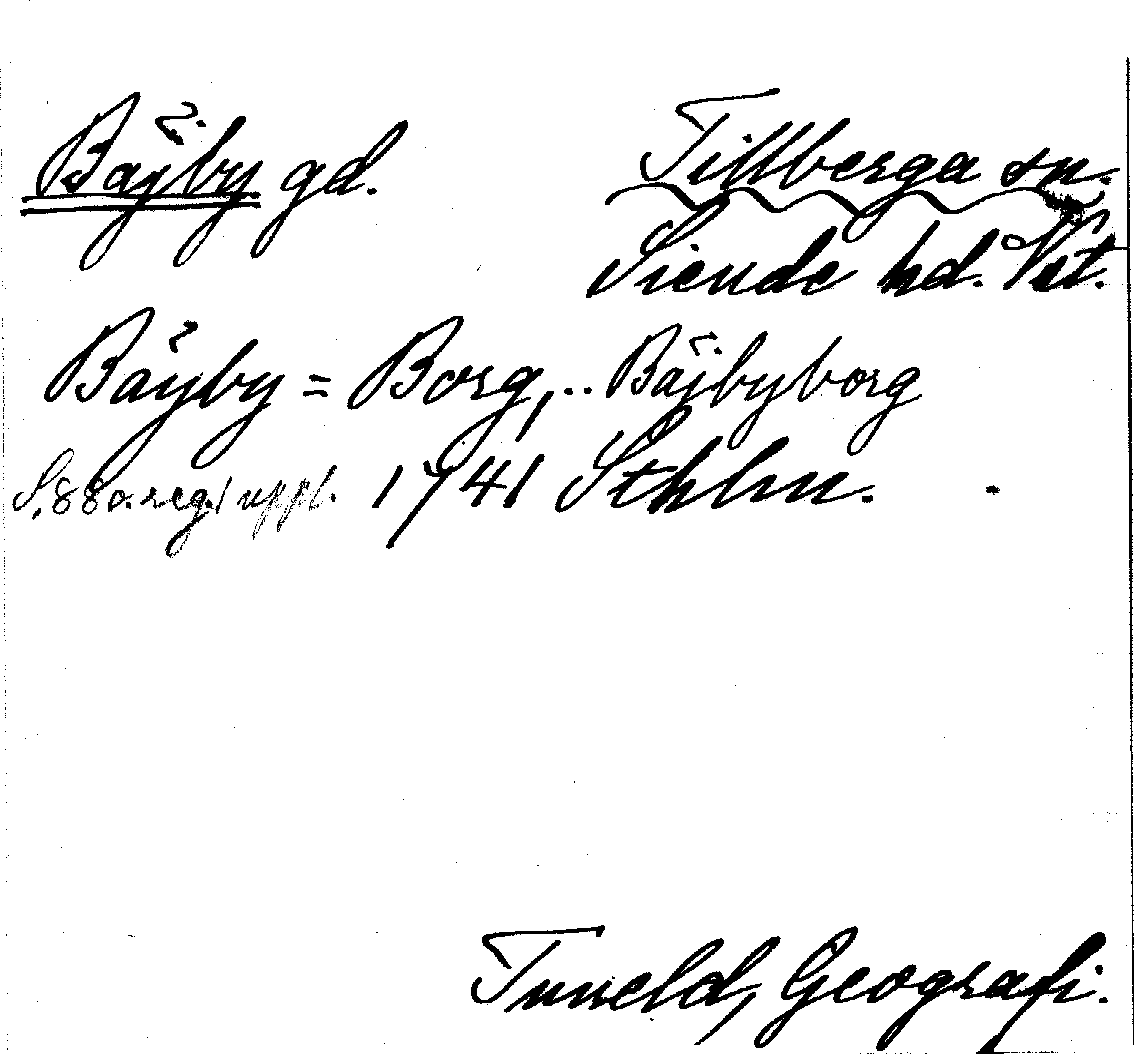 Bäjby gd. Tillberga sn.
Siende hd. Vst.
Bäyby = Borg, .. Bäjbyborg
S. 88 o. reg. 1 uppl. 1741 Sthlm.
Tuneld, Geografi.